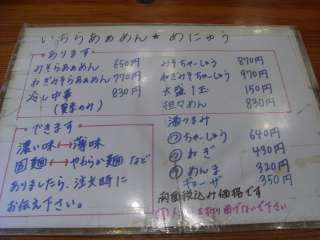 いちらぁめん★めにゅう
あります
みそらぁめん 650円
ねぎみそらぁめん 770円
冷し中華 830円
(夏季のみ)
みそちゃーしゅう 870円
ねぎみそちゃーしゅう 970円
大盛 1玉 150円
担々めん 830円
できます
濃い味↔薄味
固麺↔やわらか麺 など
ありましたら、注文時に
お伝え下さい。
酒つまみ
ちゃーしゅう 640円
ねぎ 430円
めんま 320円
ギョーザ 350円
価格です